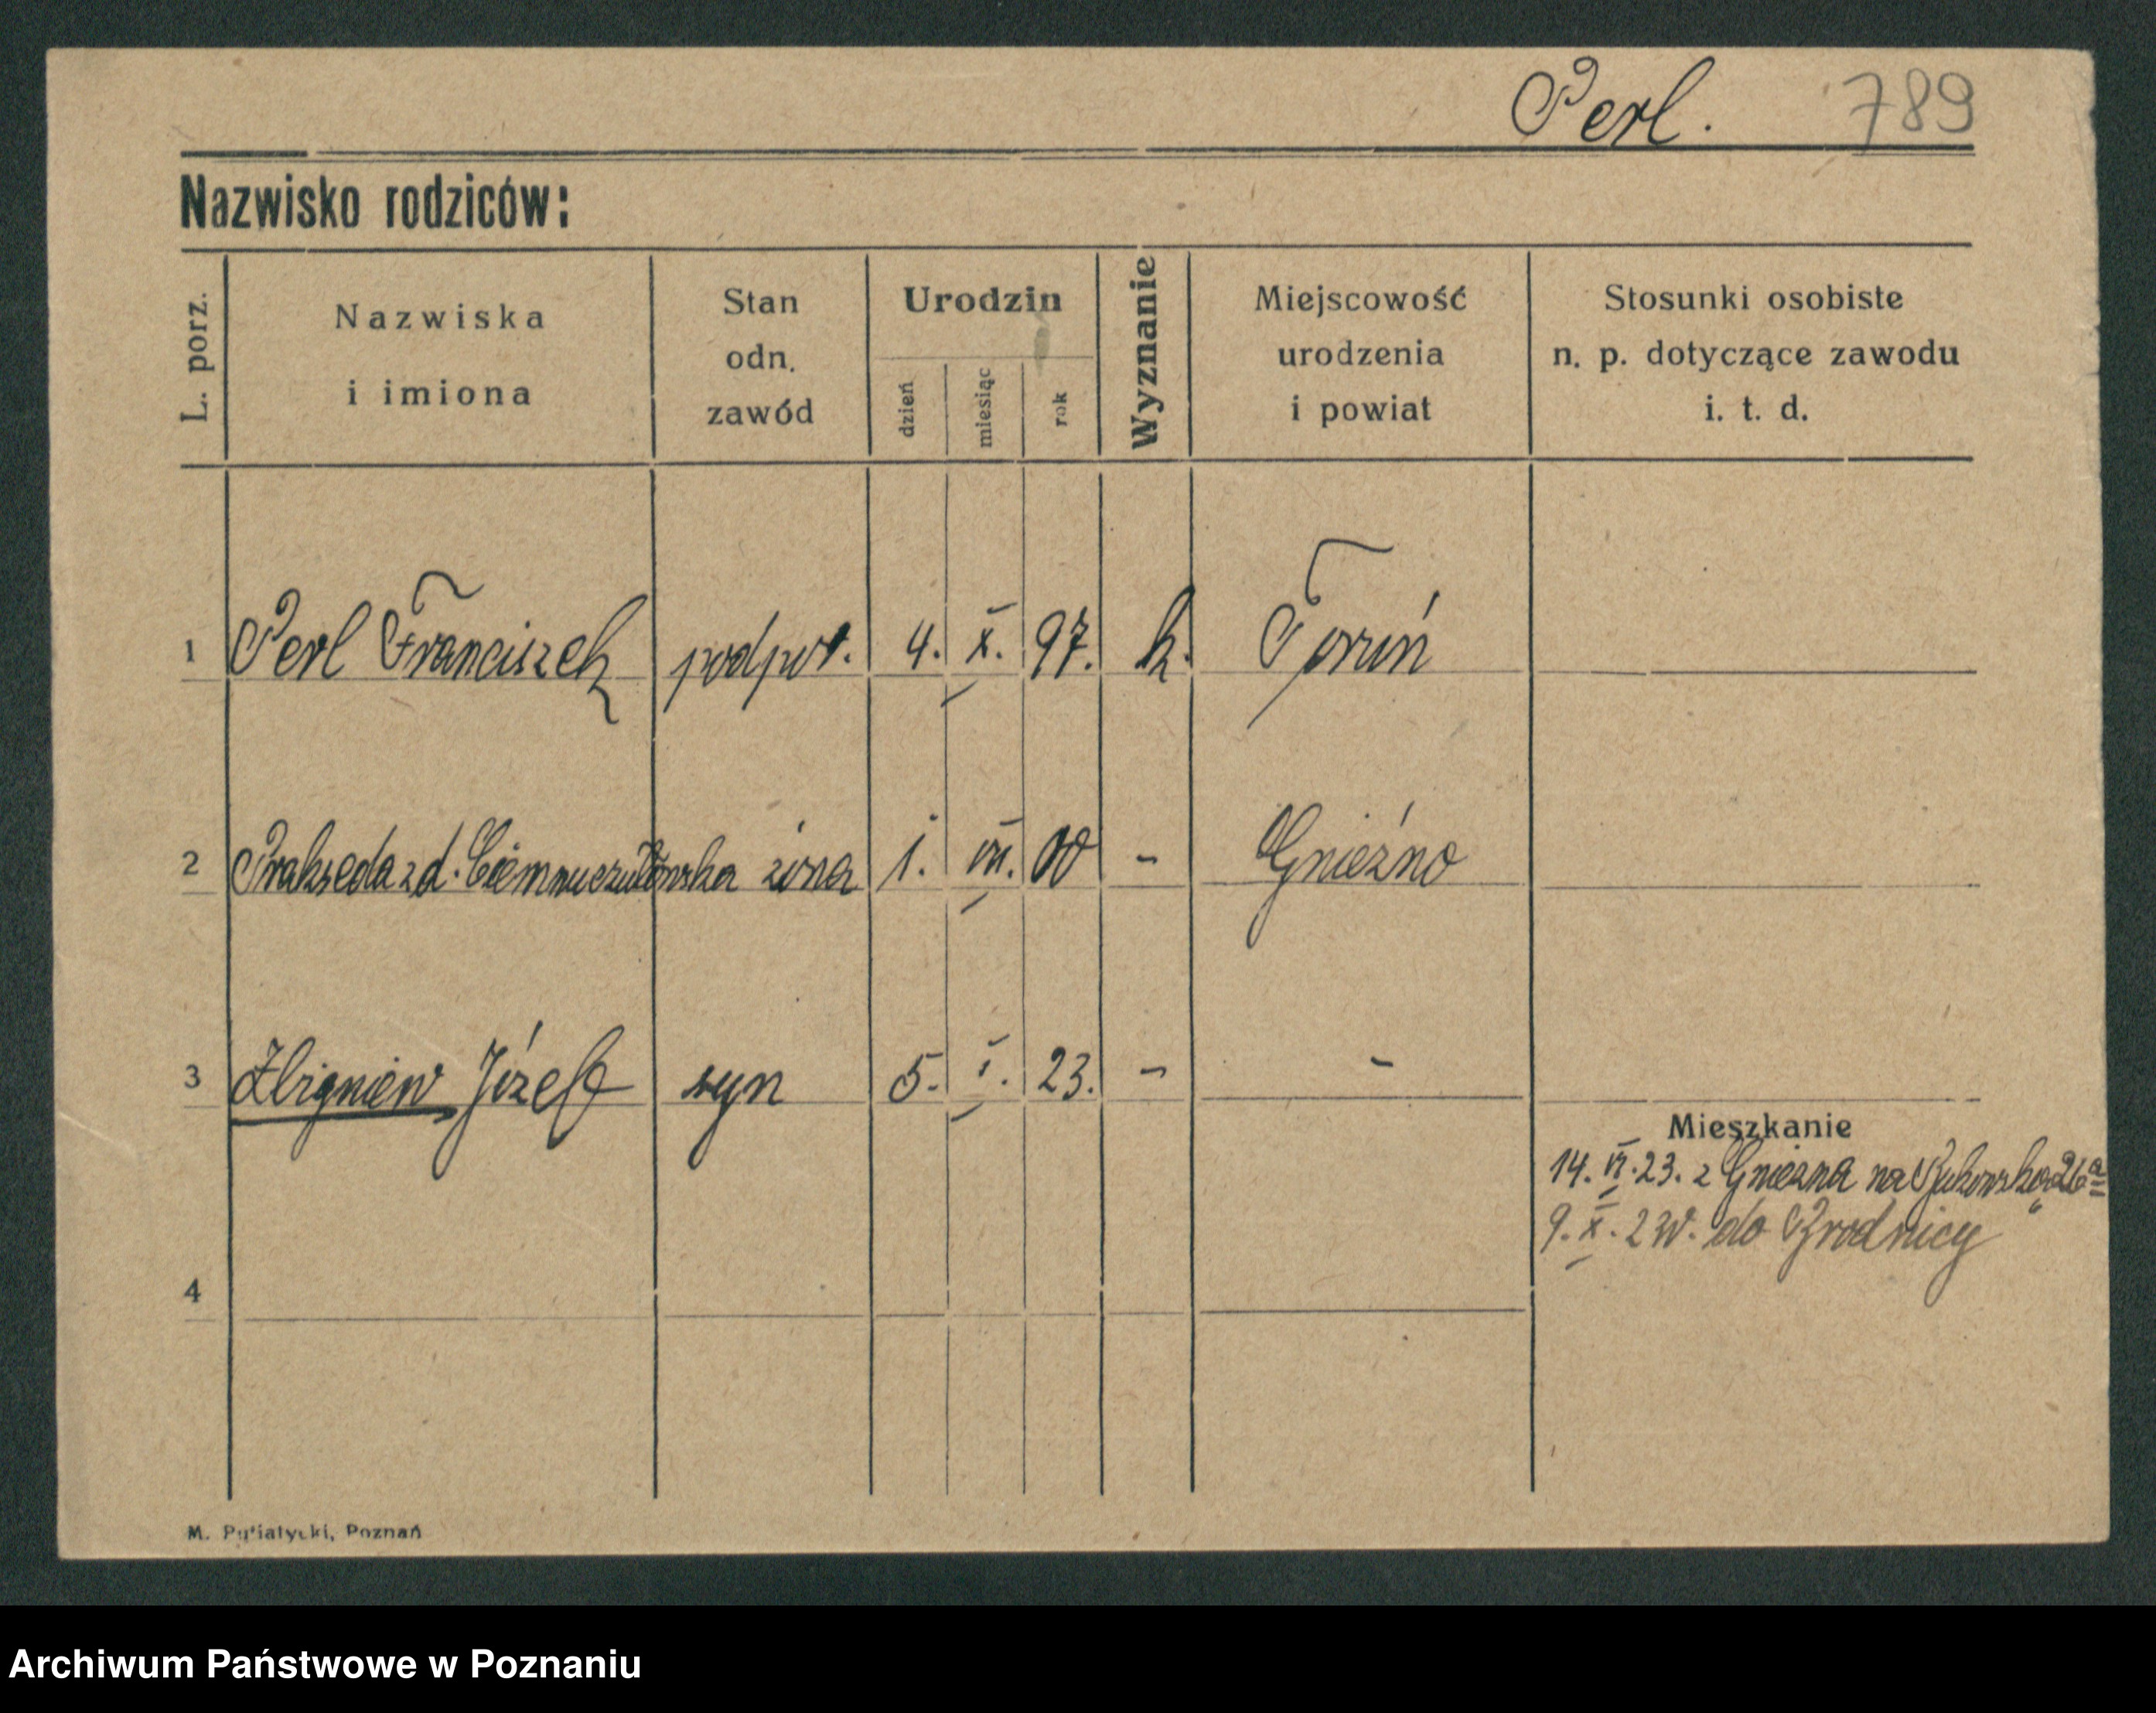 Perl. 789
Nazwisko rodziców:
L. porz. Nazwiska i imiona Stan odn. zawód Urodzin dzień miesiąc rok Wyznanie Miejscowość urodzenia i powiat Stosunki osobiste n. p. dotyczące zawodu i. t. d.
1 Perl Franciszek podpor. 4. X. 97. k. Toruń
2 Prakseda z d. żona 1. VII. 00 - Gniezno
3 Zbigniew Józef syn 5. I. 23. - -
Mieszkanie
14. VI. 23. z Gniezna na Bukowską 26a
9. X. 2 do Brodnicy
4
M. Putiatycki, Poznań
Archiwum Państwowe w Poznaniu